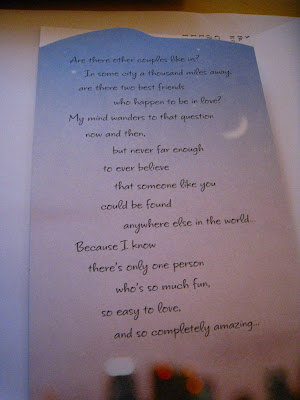 Are there other couples like us?
In some city a thousand miles away,
are there two best friends
who happen to be in love?
My mind wanders to that question
now and then,
but never far enough
to ever believe
that someone like you
could be found
anywhere else in the world...
Because I know
there's only one person
who's so much fun,
so easy to love,
and so completely amazing...